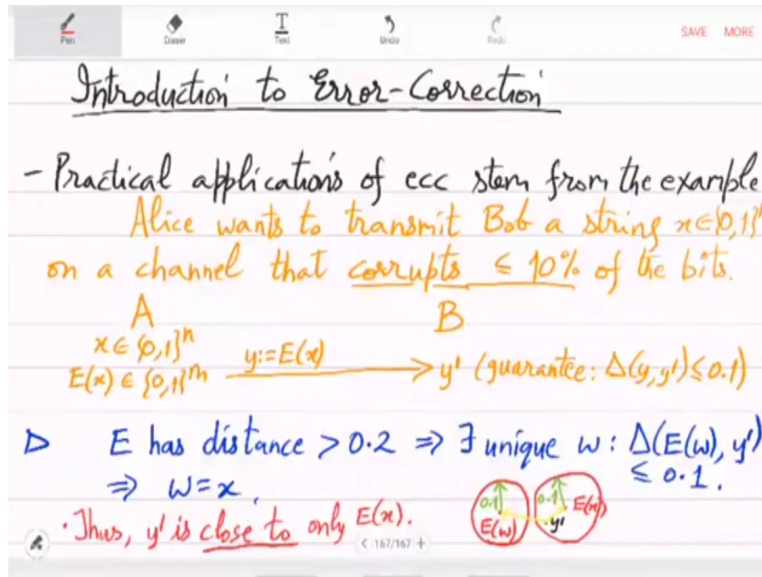 Pen Eraser Text Undo Redo SAVE MORE
Introduction to Error-Correction
- Practical applications of ecc stem from the example
Alice wants to transmit Bob a string x∈{0,1}ⁿ
on a channel that corrupts ≤ 10% of the bits.
A B
x∈{0,1}ⁿ
E(x)∈{0,1}ᵐ y:=E(x) → y' (guarantee: Δ(y,y')≤0.1)
▷ E has distance >0.2 ⇒ ∃ unique w: Δ(E(w), y')
≤ 0.1.
⇒ w=x.
· Thus, y' is close to only E(x).
0.1 E(w) 0.1 y' E(x)
< 167/167 +